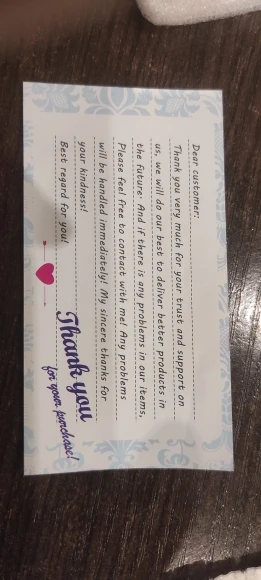 Dear customer:
Thank you very much for your trust and support on
us, we will do our best to deliver better products in
the future. And if there is any problems in our items,
Please feel free to contact with me! Any problems
will be handled immediately! My sincere thanks for
your kindness!
Best regard for you!
Thank you
for your purchase!